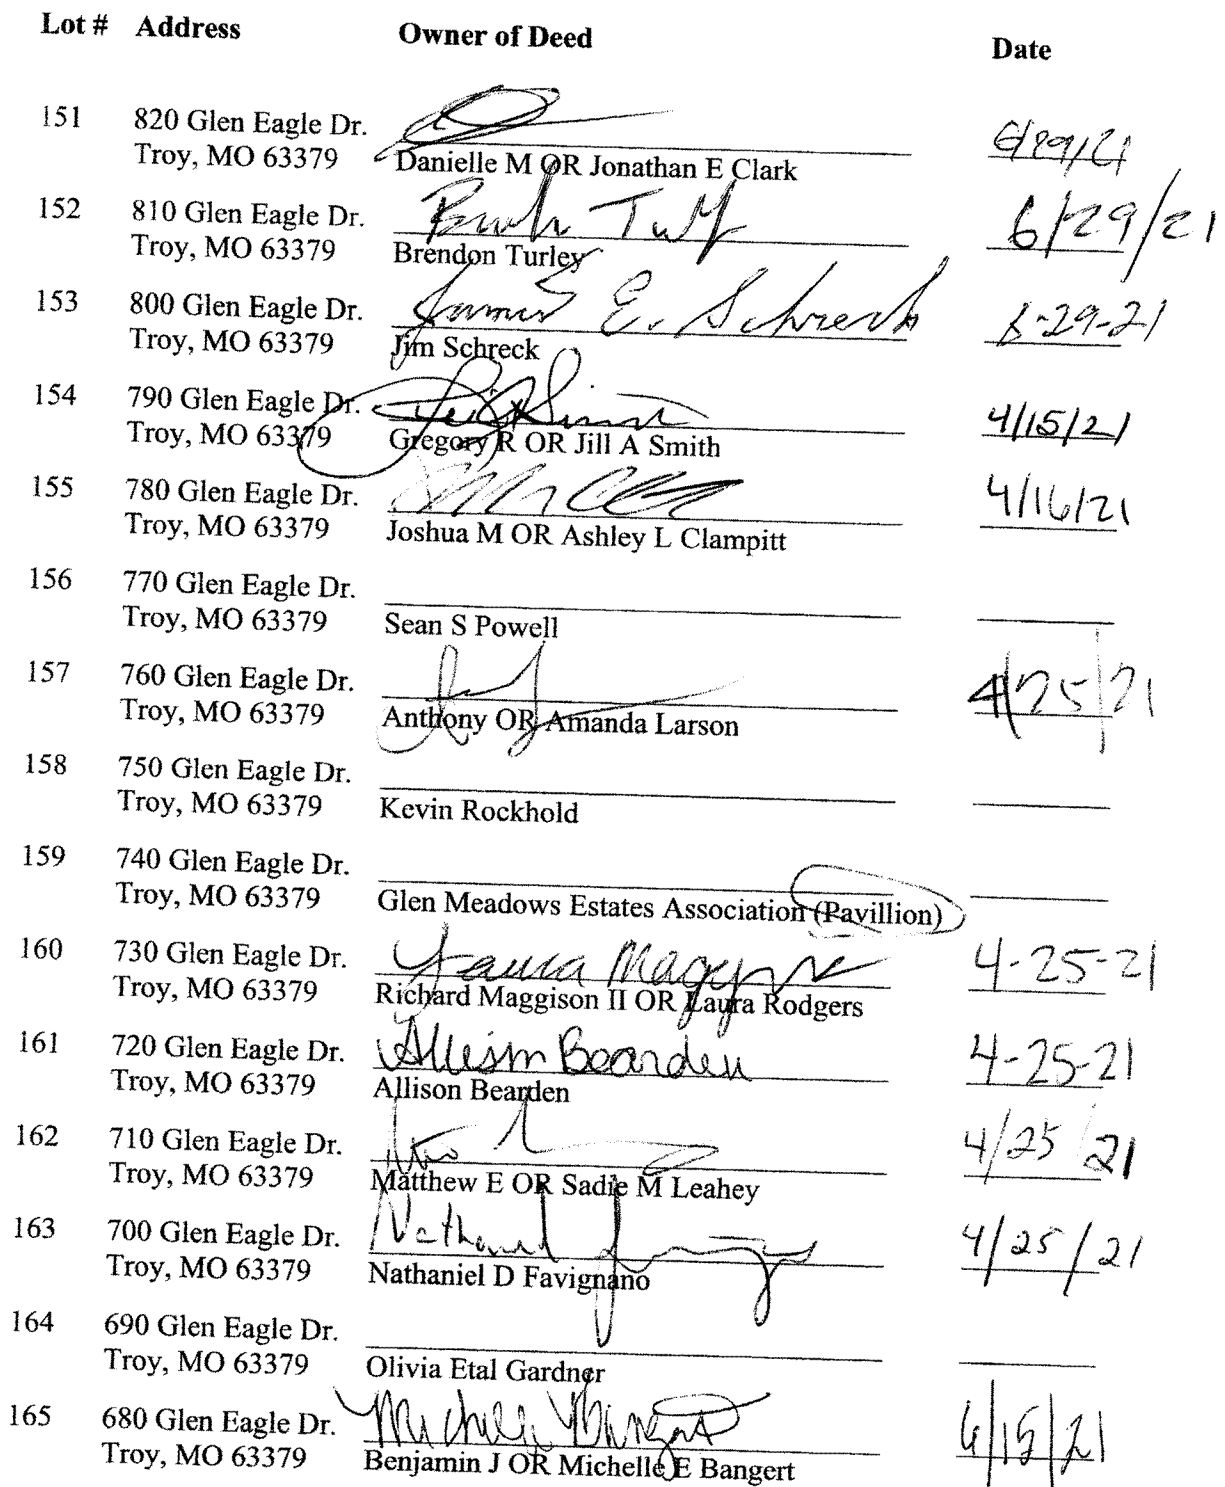 Lot # Address Owner of Deed Date
151 820 Glen Eagle Dr.
Troy, MO 63379 Danielle M OR Jonathan E Clark 6/29/21
152 810 Glen Eagle Dr.
Troy, MO 63379 Brendon Turley 6/29/21
153 800 Glen Eagle Dr. James E. Schreck
Troy, MO 63379 Jim Schreck 6-29-21
154 790 Glen Eagle Dr.
Troy, MO 63379 Gregory R OR Jill A Smith 4/15/21
155 780 Glen Eagle Dr. 4/16/21
Troy, MO 63379 Joshua M OR Ashley L Clampitt
156 770 Glen Eagle Dr.
Troy, MO 63379 Sean S Powell
157 760 Glen Eagle Dr. 4/25/21
Troy, MO 63379 Anthony OR Amanda Larson
158 750 Glen Eagle Dr.
Troy, MO 63379 Kevin Rockhold
159 740 Glen Eagle Dr.
Troy, MO 63379 Glen Meadows Estates Association (Pavillion)
160 730 Glen Eagle Dr. Laura 4-25-21
Troy, MO 63379 Richard Maggison II OR Laura Rodgers
161 720 Glen Eagle Dr. Allison Bearden 4-25-21
Troy, MO 63379 Allison Bearden
162 710 Glen Eagle Dr. 4/25/21
Troy, MO 63379 Matthew E OR Sadie M Leahey
163 700 Glen Eagle Dr. Nathaniel 4/25/21
Troy, MO 63379 Nathaniel D Favignano
164 690 Glen Eagle Dr.
Troy, MO 63379 Olivia Etal Gardner
165 680 Glen Eagle Dr. Michelle Bangert 6/15/21
Troy, MO 63379 Benjamin J OR Michelle E Bangert